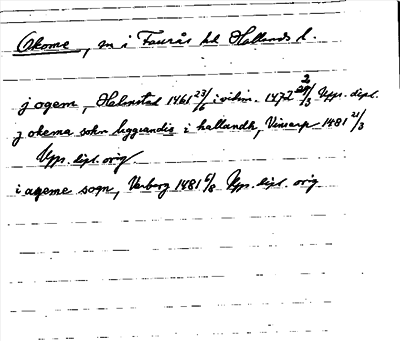 Okome, sn i Faurås hd Hallands l.
j ogem, Halmstad 1461 23/6 i vidim. 1472 2/3 Upps. dipl.
j okema sokn liggiandis i hallandh, Vinsarp 1481 21/3
Upps. dipl. orig
i ageme sogn, Varberg 1481 6/8 Upps. dipl. orig